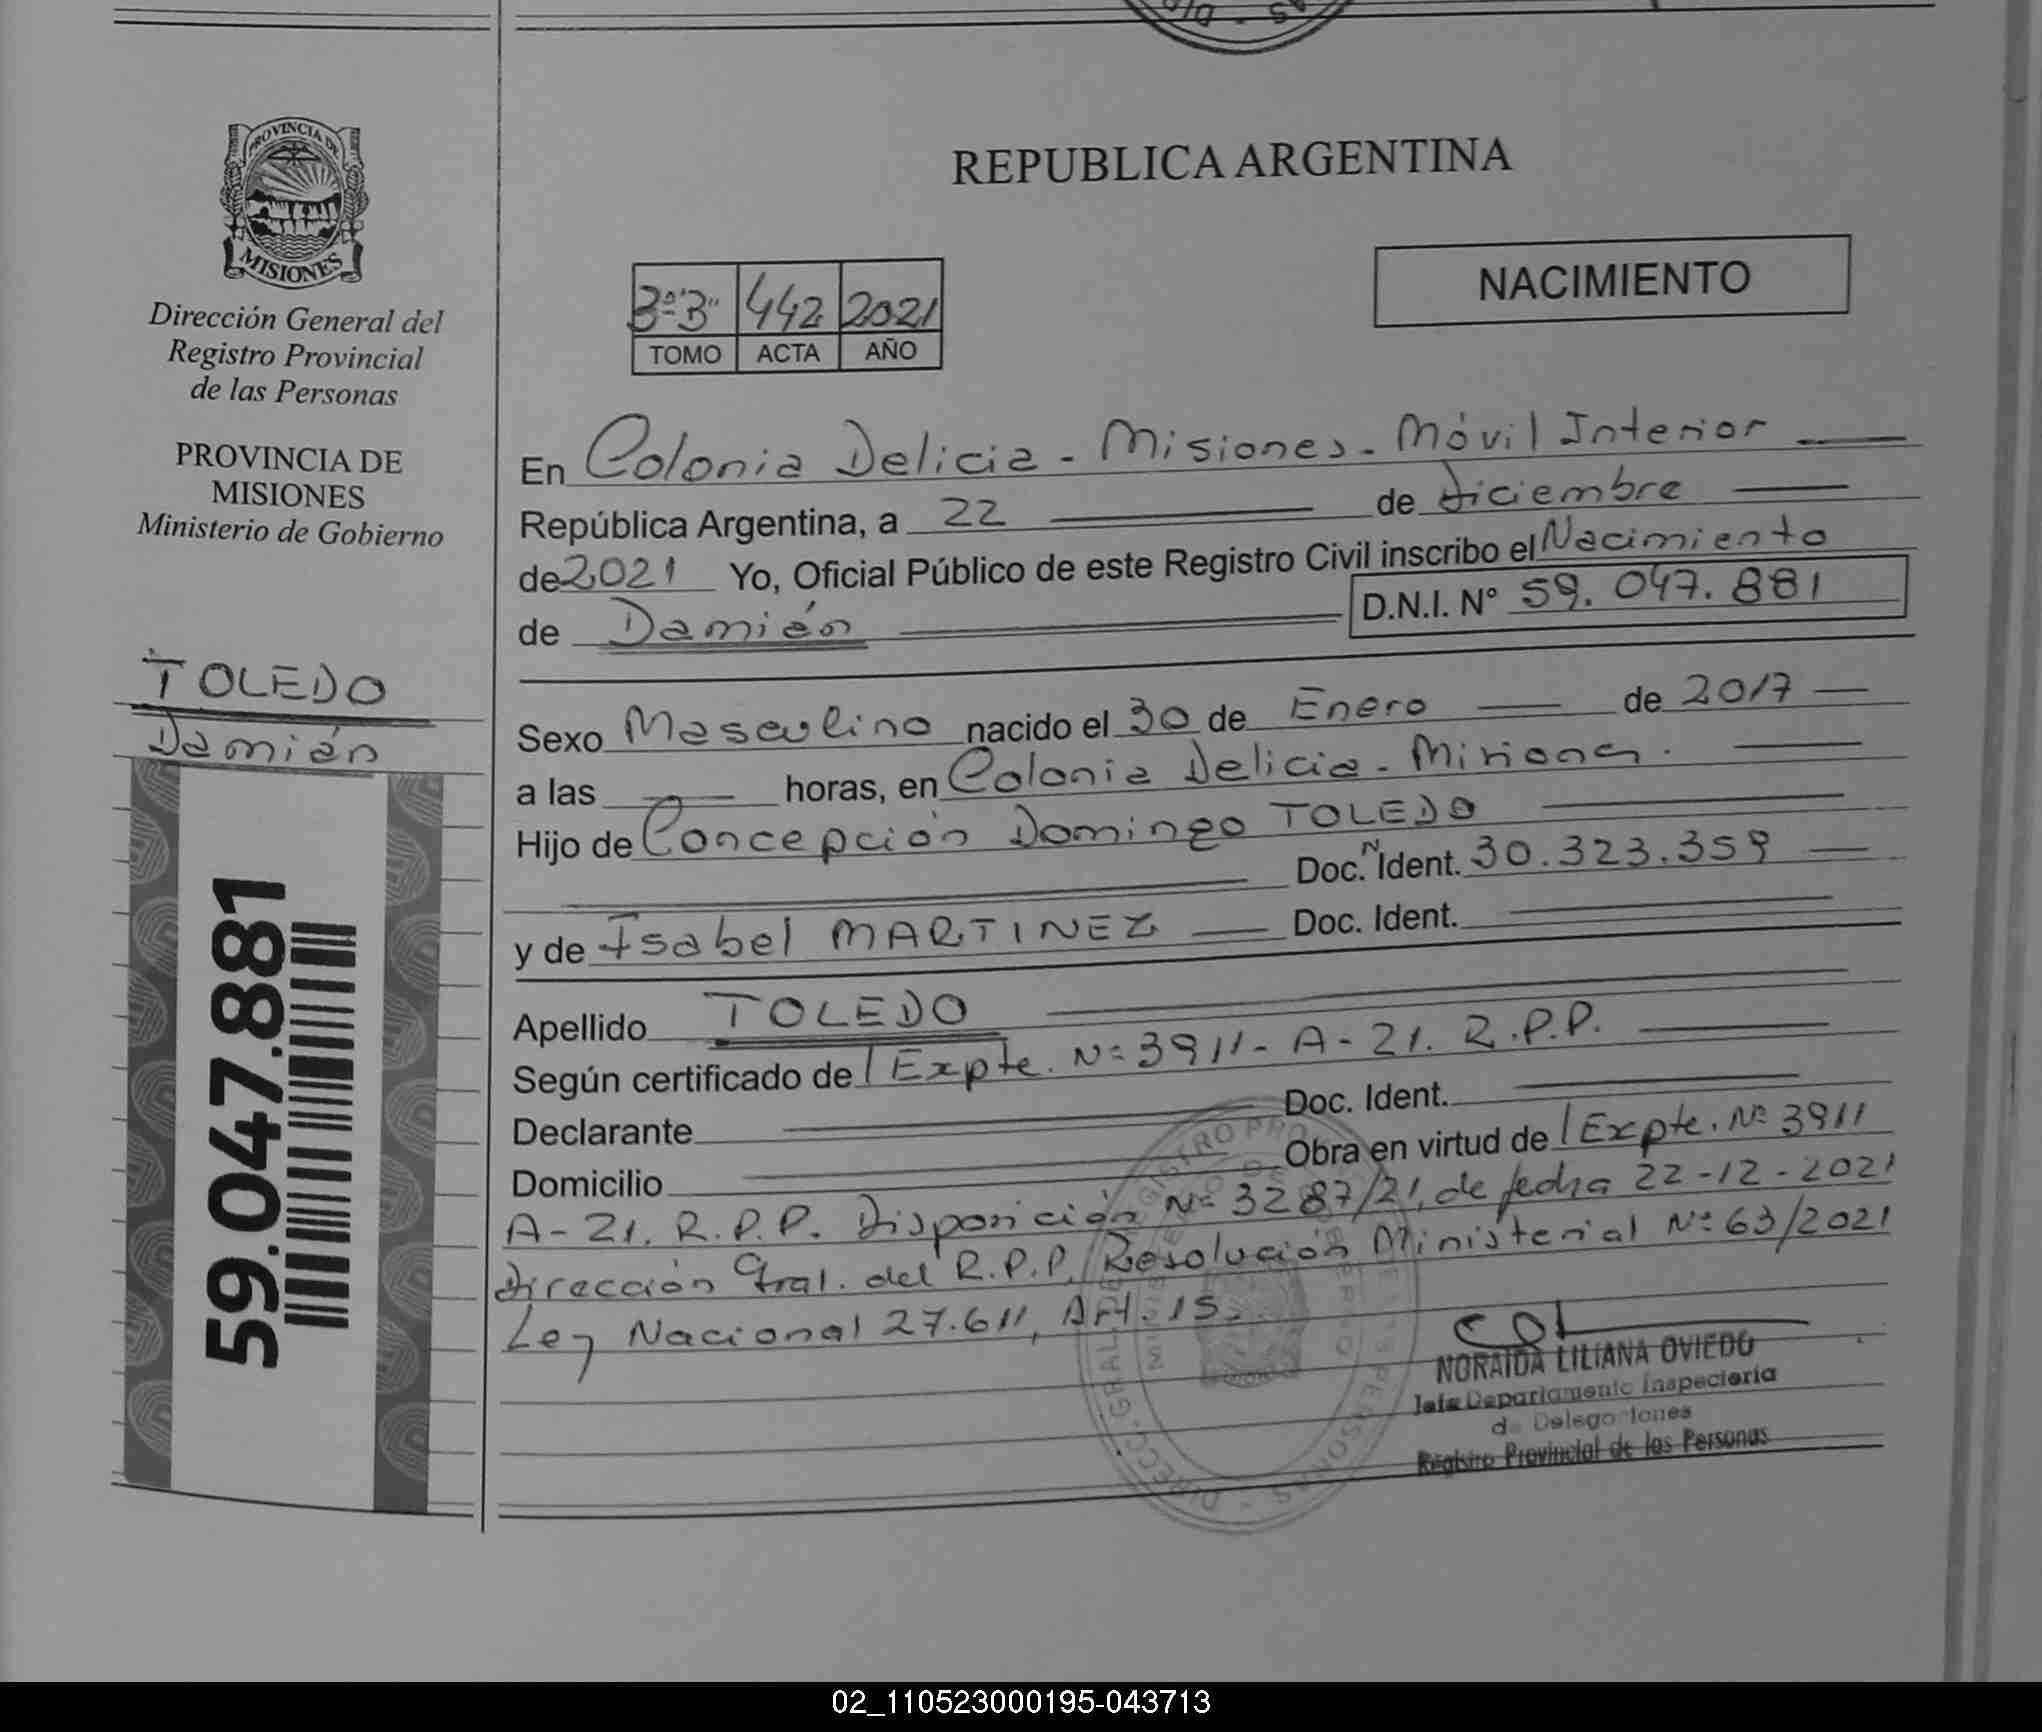 PROVINCIA DE
MISIONES
Dirección General del
Registro Provincial
de las Personas
PROVINCIA DE
MISIONES
Ministerio de Gobierno
TOLEDO
Damián
59.047.881
REPUBLICA ARGENTINA
3º"3" 442 2021
TOMO ACTA AÑO
NACIMIENTO
En Colonia Delicia - Misiones - Móvil Interior
República Argentina, a 22 de diciembre
de 2021 Yo, Oficial Público de este Registro Civil inscribo el Nacimiento
de Damián D.N.I. N° 59.047.881
Sexo Masculino nacido el 30 de Enero de 2017
a las horas, en Colonia Delicia - Misiones.
Hijo de Concepción Domingo TOLEDO
Doc. N Ident. 30.323.359
y de Isabel MARTINEZ Doc. Ident.
Apellido TOLEDO
Según certificado de / Expte. Nº 3911 - A - 21. R.P.P.
Declarante Doc. Ident.
Domicilio Obra en virtud de / Expte. Nº 3911
A - 21. R.P.P. Disposición Nº 3287/21, de fecha 22 - 12 - 2021
Dirección Gral. del R.P.P. / Resolución Ministerial Nº 63/2021
Ley Nacional 27.611, Art. 15.
NORAIDA LILIANA OVIEDO
Jefa Departamento Inspectoría
de Delegaciones
Registro Provincial de las Personas
02_110523000195-043713